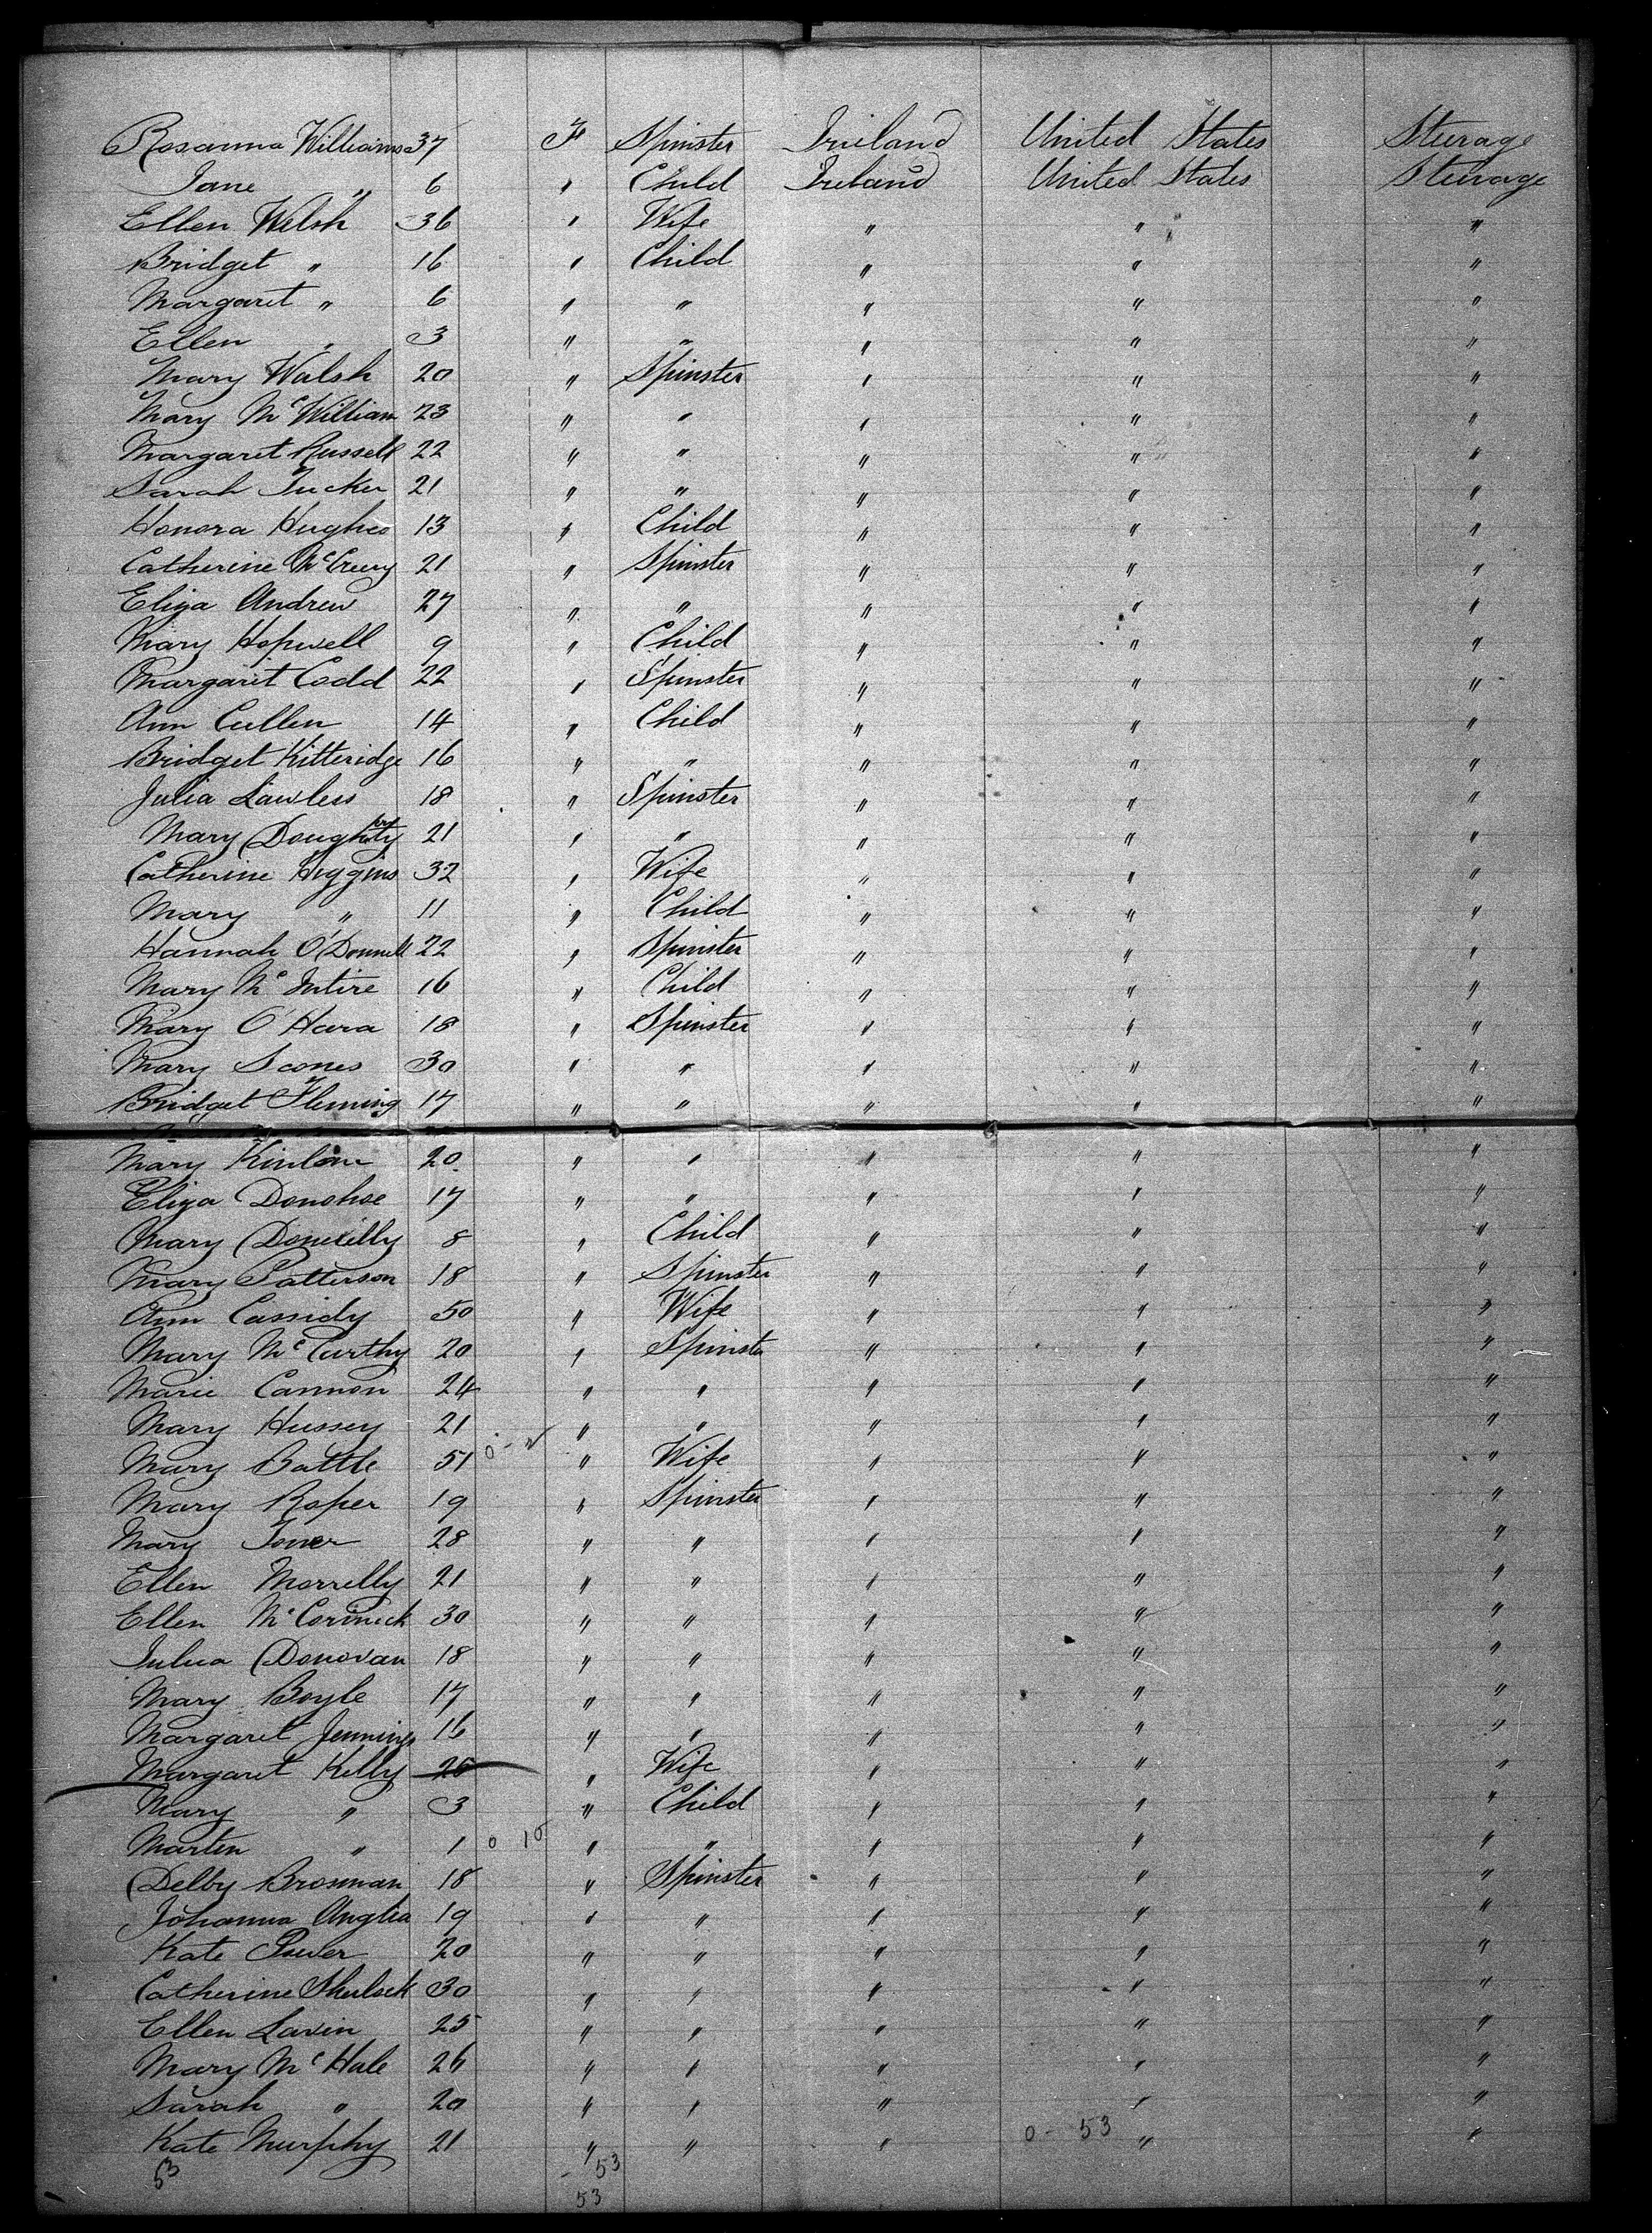 Rosanna Williams 37 F Spinster Irieland United States Steerage
Jane " 6 " Child Ireland United States Steerage
Ellen Welsh 36 " Wife " " "
Bridget " 16 " Child " " "
Margaret " 6 " " " " "
Ellen " 3 " " " " "
Mary Walsh 20 " Spinster " " "
Mary McWilliam 23 " " " " "
Margaret Russell 22 " " " " "
Sarah Tucker 21 " " " " "
Honora Hughes 13 " Child " " "
Catherine McCreery 21 " Spinster " " "
Eliza Andrew 27 " " " " "
Mary Hopwell 9 " Child " " "
Margaret Codd 22 " Spinster " " "
Ann Cullen 14 " Child " " "
Bridget Kitteridge 16 " " " " "
Julia Lawless 18 " Spinster " " "
Mary Doughty 21 " " " " "
Catherine Higgins 32 " Wife " " "
Mary " 11 " Child " " "
Hannah O'Donnell 22 " Spinster " " "
Mary McIntire 16 " Child " " "
Mary O'Hara 18 " Spinster " " "
Mary Scones 30 " " " " "
Bridget Fleming 17 " " " " "
Mary 20 " " " " "
Eliza Donohoe 17 " " " " "
Mary Donnelly 8 " Child " " "
Mary Patterson 18 " Spinster " " "
Ann Cassidy 50 " Wife " " "
Mary McCarthy 20 " Spinster " " "
Marie Cannon 24 " " " " "
Mary Hussey 21 " " " " "
Mary Battle 51 " Wife " " "
Mary Roper 19 " Spinster " " "
Mary Toner 28 " " " " "
Ellen Morrelly 21 " " " " "
Ellen McCormick 30 " " " " "
Julia Donovan 18 " " " " "
Mary Boyle 17 " " " " "
Margaret Jennings 16 " " " " "
Margaret Kelly 25 " Wife " " "
Mary " 3 " Child " " "
Marten " 1 0 10 " " " " "
Delby Brosnan 18 " Spinster " " "
Johanna Anglea 19 " " " " "
Kate Power 20 " " " " "
Catherine Shulock 30 " " " " "
Ellen Lavin 25 " " " " "
Mary McHale 26 " " " " "
Sarah " 20 " " " " "
Kate Murphy 21 " " " 0-53 " "
53 - 53
53